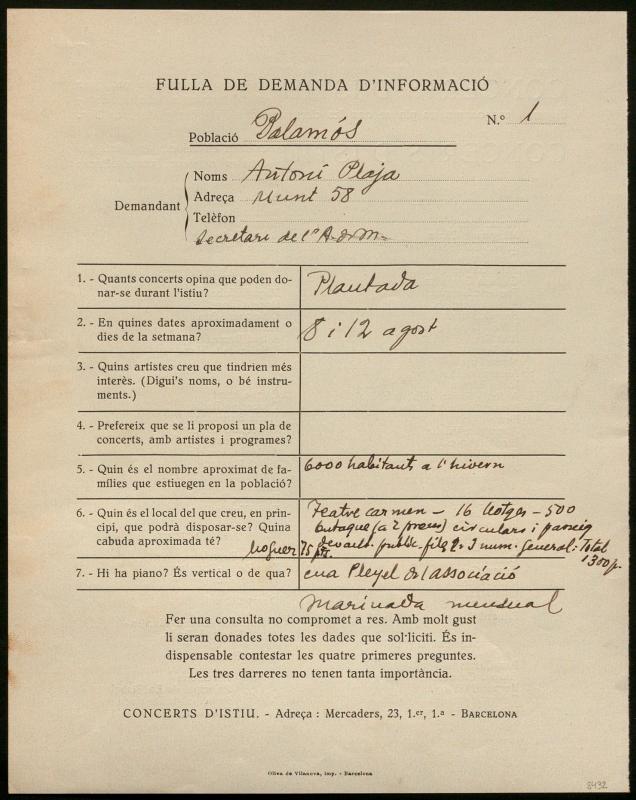 FULLA DE DEMANDA D'INFORMACIÓ
N.º 1
Població Palamós
Noms Antoni Plaja
Demandant
Adreça Munt 58
Telèfon
Secretari de l'A. de M.
1. - Quants concerts opina que poden do-
nar-se durant l'istiu?
Plantada
2. - En quines dates aproximadament o
dies de la setmana?
8 i 12 agost
3. - Quins artistes creu que tindrien més
interès. (Digui's noms, o bé instru-
ments.)
4. - Prefereix que se li proposi un pla de
concerts, amb artistes i programes?
5. - Quin és el nombre aproximat de fa-
mílies que estiuegen en la població?
6000 habitants a l'hivern
6. - Quin és el local del que creu, en prin-
cipi, que podrà disposar-se? Quina
cabuda aproximada té?
Teatre Carmen - 16 llotges - 500
butaques (a 2 preus) circulars i passeig
públic. fila 2 i 3 num. General. Total
1300 p.
lloguer 75 pts.
7. - Hi ha piano? És vertical o de qua?
cua Pleyel de l'associació
Marinada mensual
Fer una consulta no compromet a res. Amb molt gust
li seran donades totes les dades que sol·liciti. És in-
dispensable contestar les quatre primeres preguntes.
Les tres darreres no tenen tanta importància.
CONCERTS D'ISTIU. - Adreça : Mercaders, 23, 1.er, 1.ª - BARCELONA
Oliva de Vilanova, imp. - Barcelona
8432